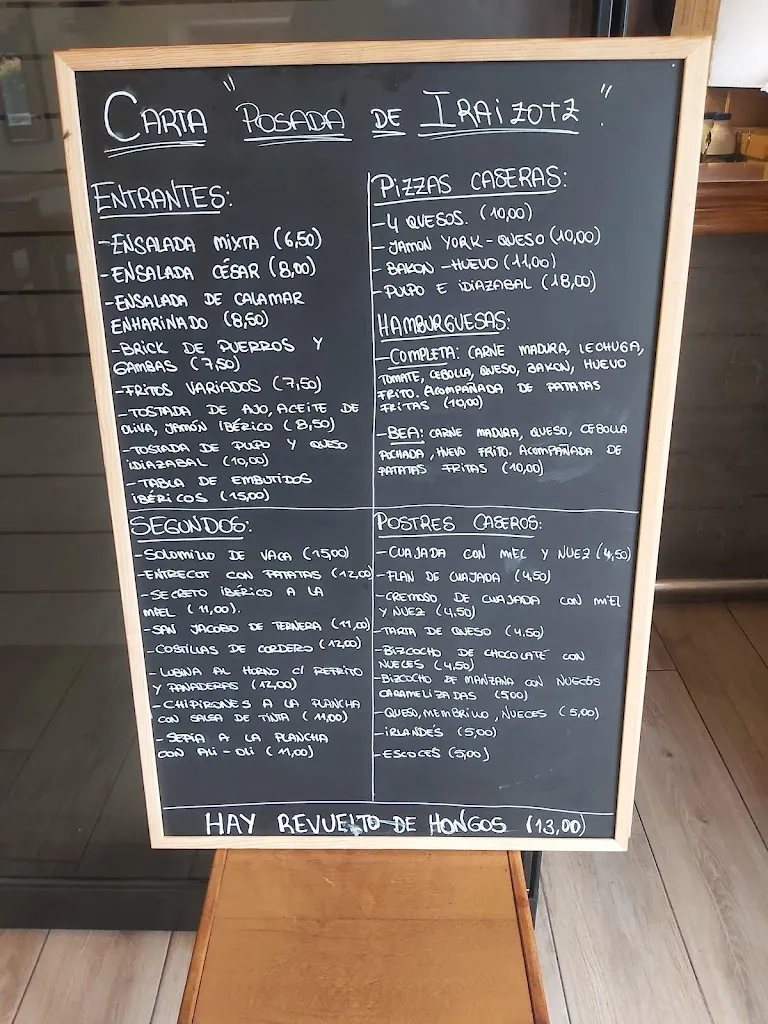 CARTA "POSADA DE IRAIZOTZ".
ENTRANTES:
-ENSALADA MIXTA (6,50)
-ENSALADA CÉSAR (8,00)
-ENSALADA DE CALAMAR
ENHARINADO (8,50)
-BRICK DE PUERROS Y
GAMBAS (7,50)
-FRITOS VARIADOS (7,50)
-TOSTADA DE AJO, ACEITE DE
OLIVA, JAMÓN IBÉRICO (8,50)
-TOSTADA DE PULPO Y QUESO
IDIAZABAL (10,00)
-TABLA DE EMBUTIDOS
IBÉRICOS (15,00)
PIZZAS CASERAS:
-4 QUESOS. (10,00)
-JAMON YORK-QUESO (10,00)
-BAKON-HUEVO (11,00)
-PULPO E IDIAZABAL (18,00)
HAMBURGUESAS:
-COMPLETA: CARNE MADURA, LECHUGA,
TOMATE, CEBOLLA, QUESO, BAKON, HUEVO
FRITO. ACOMPAÑADA DE PATATAS
FRITAS (10,00)
-BEA: CARNE MADURA, QUESO, CEBOLLA
POCHADA, HUEVO FRITO. ACOMPAÑADA DE
PATATAS FRITAS (10,00)
SEGUNDOS:
-SOLOMILLO DE VACA (15,00)
-ENTRECOT CON PATATAS (12,00)
-SECRETO IBÉRICO A LA
MIEL (11,00).
-SAN JACOBO DE TERNERA (11,00)
-COSTILLAS DE CORDERO (12,00)
-LUBINA AL HORNO C/ REFRITO
Y PANADERAS (12,00)
-CHIPIRONES A LA PLANCHA
CON SALSA DE TINTA (11,00)
-SEPIA A LA PLANCHA
CON ALI-OLI (11,00)
POSTRES CASEROS:
-CUAJADA CON MIEL Y NUEZ (4,50)
-FLAN DE CUAJADA (4,50)
-CREMOSO DE CUAJADA CON MIEL
Y NUEZ (4,50)
-TARTA DE QUESO (4,50)
-BIZCOCHO DE CHOCOLATE CON
NUECES (4,50)
-BIZCOCHO DE MANZANA CON NUECES
CARAMELIZADAS (5,00)
-QUESO, MEMBRILLO, NUECES (5,00)
-IRLANDÉS (5,00)
-ESCOCÉS (5,00)
HAY REVUELTO DE HONGOS (13,00)